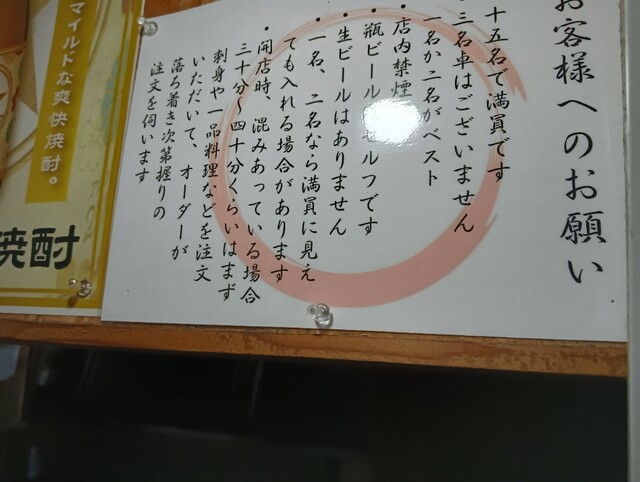 お客様へのお願い
十五名で満員です
・三名卓はございません
一名か二名がベスト
・店内禁煙
・瓶ビール セルフです
生ビールはありません
・一名、二名なら満員に見え
ても入れる場合があります
・開店時、混みあっている場合
三十分~四十分くらいはまず
刺身や一品料理などを注文
いただいて、オーダーが
落ろ着き次第握りの
注文を伺います
マイルドな爽快焼酎。
焼酎